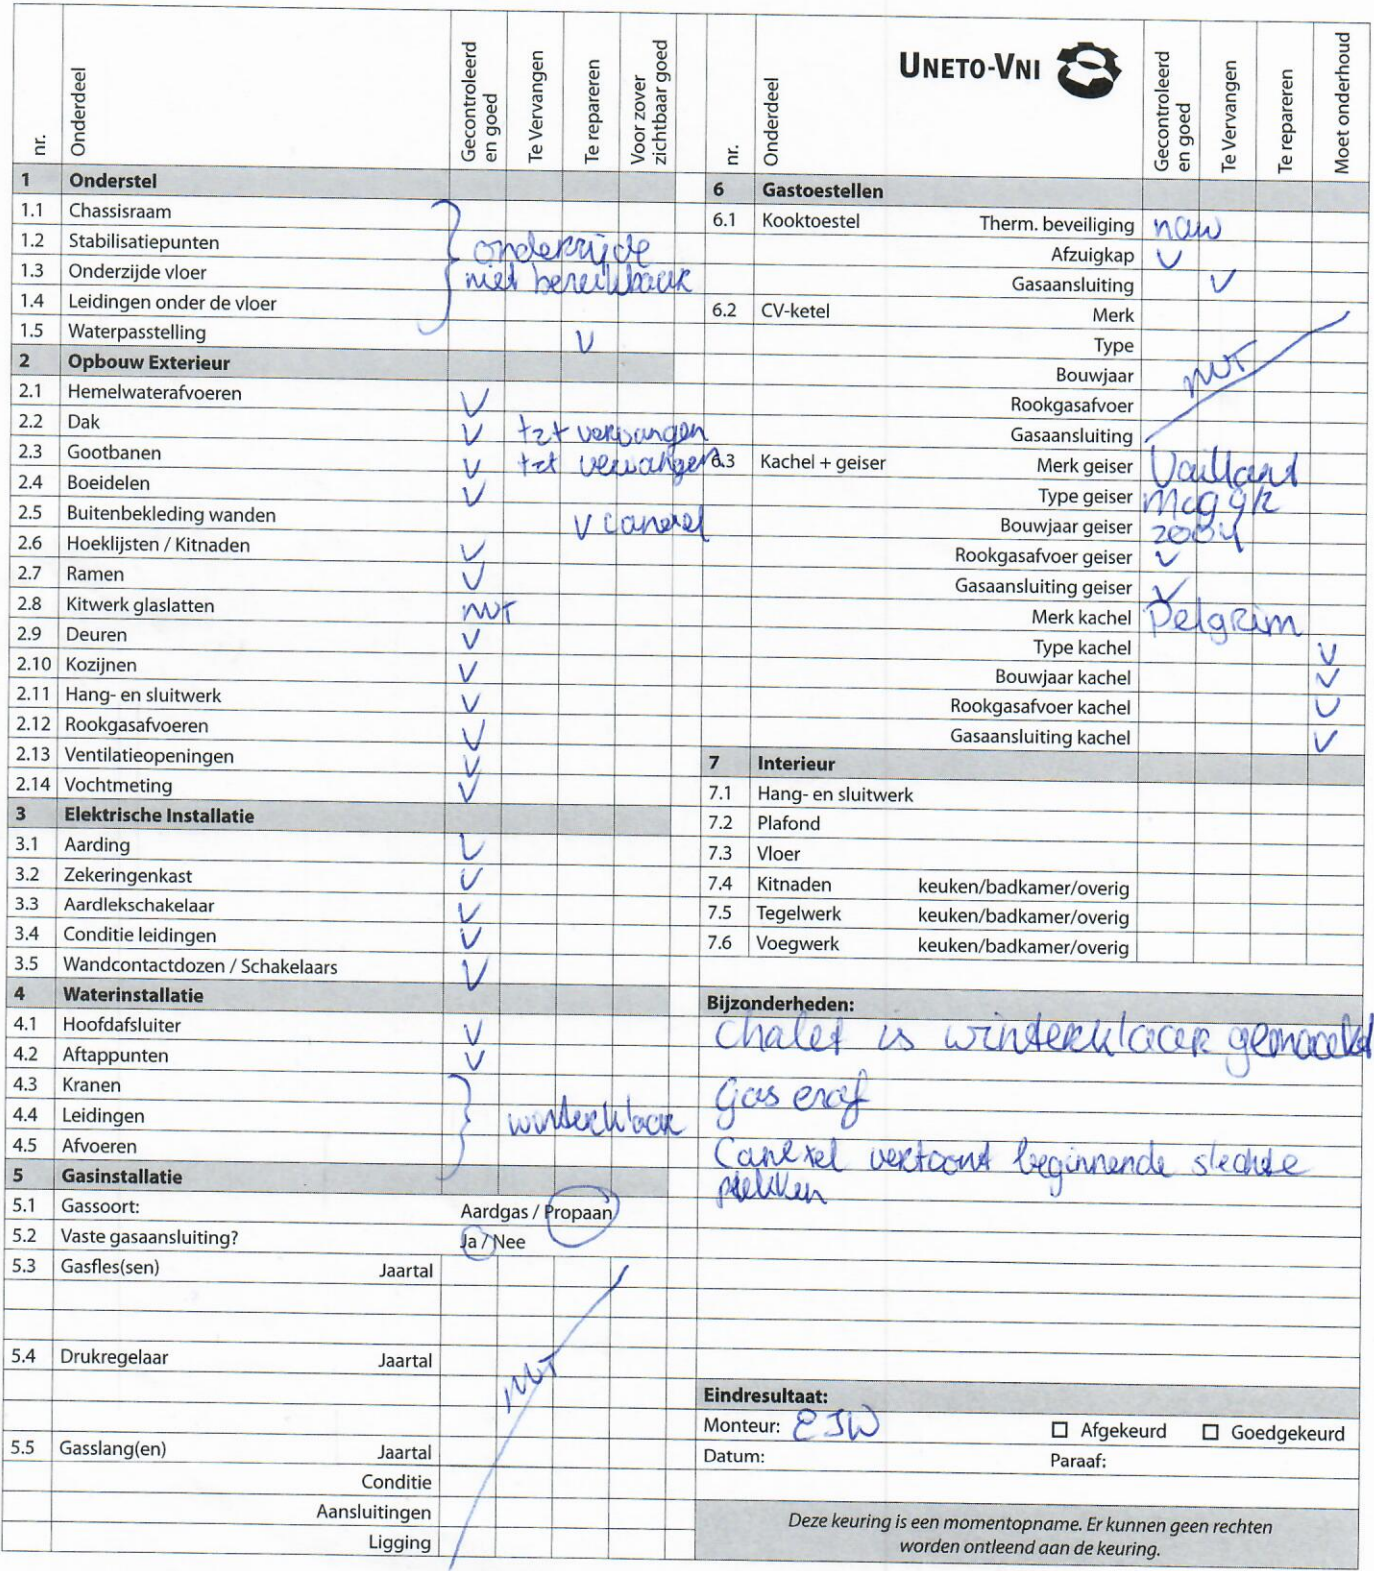 nr. Onderdeel Gecontroleerd en goed Te Vervangen Te repareren Voor zover zichtbaar goed
1 Onderstel
1.1 Chassisraam
1.2 Stabilisatiepunten
1.3 Onderzijde vloer
1.4 Leidingen onder de vloer
onderzijde
niet bereikbaar
1.5 Waterpasstelling V
2 Opbouw Exterieur
2.1 Hemelwaterafvoeren V
2.2 Dak V tzt vervangen
2.3 Gootbanen V tzt vervangen
2.4 Boeidelen V
2.5 Buitenbekleding wanden V canexel
2.6 Hoeklijsten / Kitnaden V
2.7 Ramen V
2.8 Kitwerk glaslatten NVT
2.9 Deuren V
2.10 Kozijnen V
2.11 Hang- en sluitwerk V
2.12 Rookgasafvoeren V
2.13 Ventilatieopeningen V
2.14 Vochtmeting V
3 Elektrische Installatie
3.1 Aarding V
3.2 Zekeringenkast V
3.3 Aardlekschakelaar V
3.4 Conditie leidingen V
3.5 Wandcontactdozen / Schakelaars V
4 Waterinstallatie
4.1 Hoofdafsluiter V
4.2 Aftappunten V
4.3 Kranen
4.4 Leidingen winterklaar
4.5 Afvoeren
5 Gasinstallatie
5.1 Gassoort: Aardgas / Propaan
5.2 Vaste gasaansluiting? Ja / Nee
5.3 Gasfles(sen) Jaartal
5.4 Drukregelaar Jaartal
NVT
5.5 Gasslang(en) Jaartal
Conditie
Aansluitingen
Ligging
UNETO-VNI
nr. Onderdeel Gecontroleerd en goed Te Vervangen Te repareren Moet onderhoud
6 Gastoestellen
6.1 Kooktoestel Therm. beveiliging naw
Afzuigkap V
Gasaansluiting V
6.2 CV-ketel Merk
Type
Bouwjaar NVT
Rookgasafvoer
Gasaansluiting
6.3 Kachel + geiser Merk geiser Vaillant
Type geiser
Bouwjaar geiser 2004
Rookgasafvoer geiser V
Gasaansluiting geiser V
Merk kachel Pelgrim
Type kachel V
Bouwjaar kachel V
Rookgasafvoer kachel V
Gasaansluiting kachel V
7 Interieur
7.1 Hang- en sluitwerk
7.2 Plafond
7.3 Vloer
7.4 Kitnaden keuken/badkamer/overig
7.5 Tegelwerk keuken/badkamer/overig
7.6 Voegwerk keuken/badkamer/overig
Bijzonderheden:
Chalet is winterklaar gemaakt
Gas eraf
Canexel vertoont beginnende slechte
plekken
Eindresultaat:
Monteur: EJW ☐ Afgekeurd ☐ Goedgekeurd
Datum: Paraaf:
Deze keuring is een momentopname. Er kunnen geen rechten
worden ontleend aan de keuring.